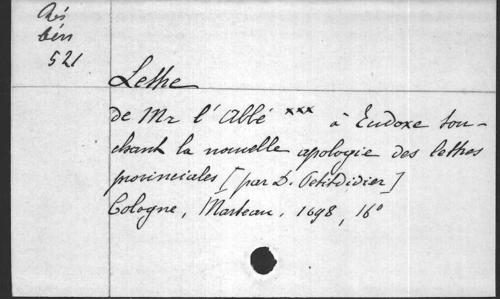 Rés
bén
521
Lettre
de Mr l'Abbé xxx à Eudoxe tou-
chant la nouvelle apologie des lettres
provinciales [par D. Petitdidier]
Cologne, Marteau, 1698, 16°